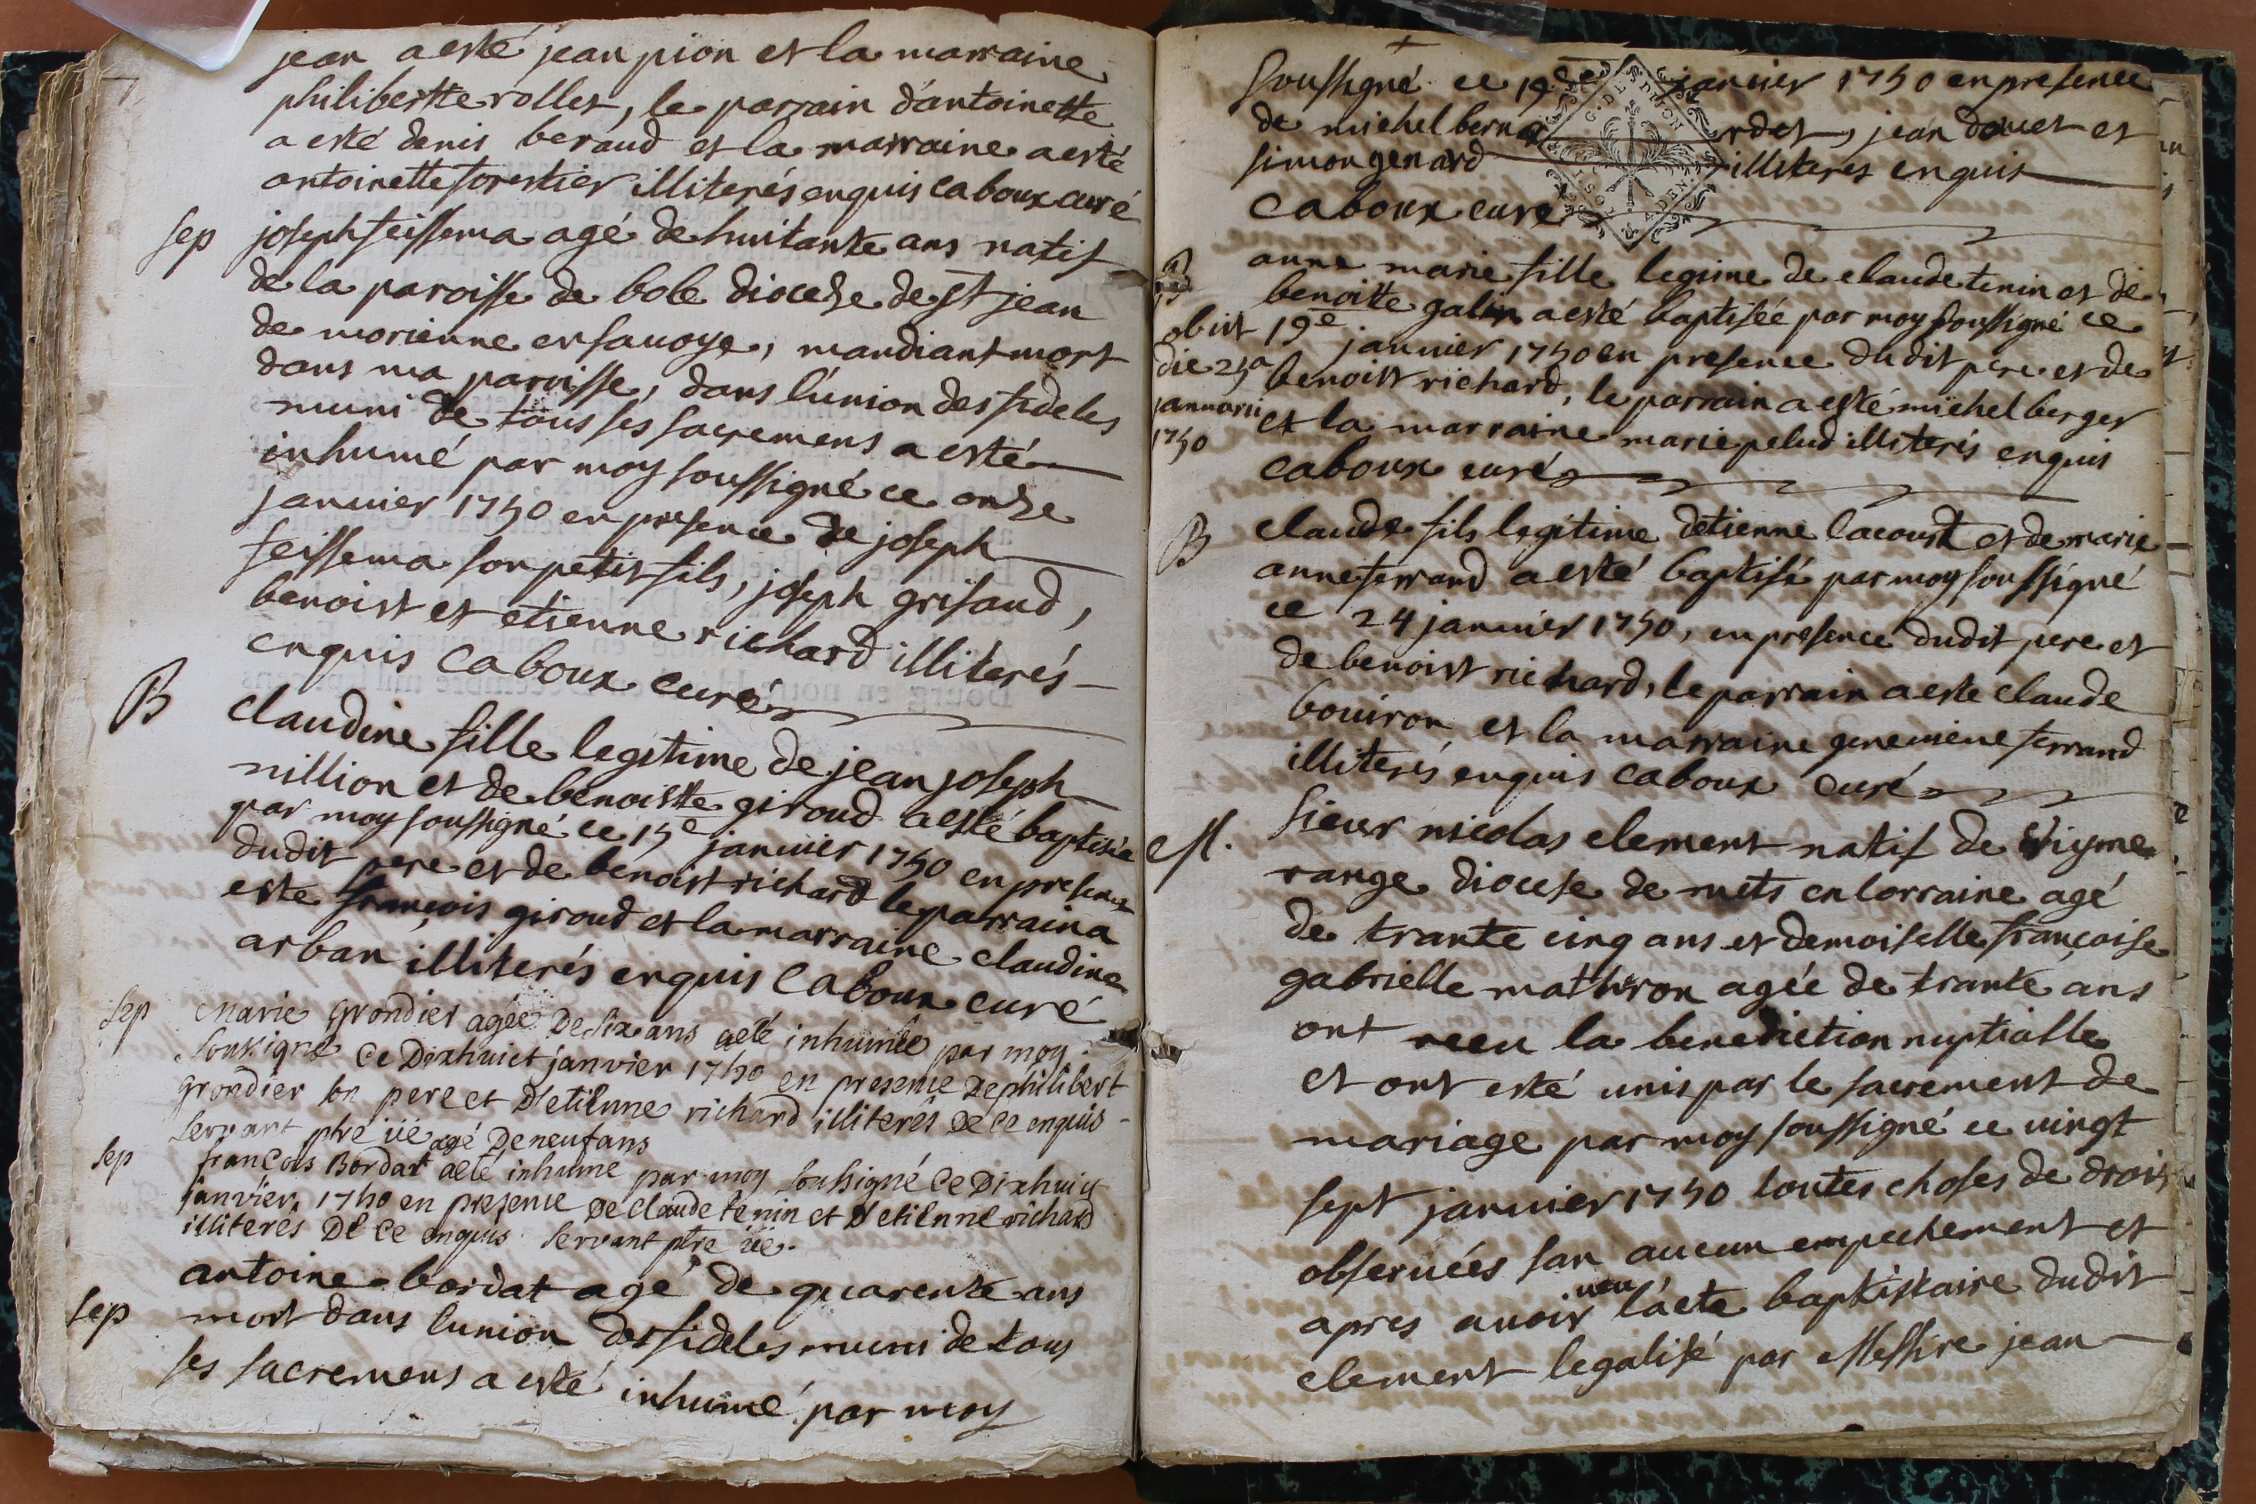 jean a esté jean pion et la marraine
philibertte rollet, le parrain d'antoinette
a esté denis beraud et la marraine a esté
antoinette forestier illiterés enquis Caboux curé
sep joseph feissema agé de huitante ans natif
de la paroisse de bole dioceze de st jean
de morienne en sauoye, mandiant mort
dans ma paroisse, dans l'union des fideles
muni de tous ses sacremens a esté
inhumé par moy soussigné ce onze
januier 1750 en presence de joseph
feissema son petit fils, joseph grisaud,
benoist et etienne richard illiterés
enquis Caboux curé
B claudine fille legitime de jean joseph
nillion et de benoistte giroud a esté baptisée
par moy soussigné ce 15e januier 1750 en presence
dudit pere et de benoist richard le parrain a
este françois giroud et la marraine claudine
arban illiterés enquis Caboux curé
sep Marie grondier agée De six ans aeté inhumée par moy
soussigné Ce Dixhuict janvier 1750 en presence De philibert
grondier son pere et D'etienne richard illiterés De Ce enquis
servant ptre ııe
agé De neuf ans
sep françois Bordat aeté inhumé par moy soussigné Ce Dixhuict
janvier 1750 en presence De Claude tenin et D'etienne richard
illiterés De Ce enquis servant ptre ııe.
sep antoine bordat agé de quarente ans
mort dans l'union des fideles muni de tous
ses sacremens a esté inhumé par moy
soussigné ce 19e januier 1750 en presence
de michel bernardet, jean douet et
simon genard illiteres enquis
Caboux curé
G. DE DIJON
B anne marie fille legime de claude tenin et de
benoitte galin a esté baptisée par moy soussigné ce
19e januier 1750 en presence dudit pere et de
benoist richard, le parrain a esté michel berger
et la marraine marie pelud illiterés enquis
Caboux curé
obiit
die 25a
januarii
1750
B claude fils legitime detienne lacoust et de marie
anne ferrand a esté baptisé par moy soussigné
ce 24 januier 1750, en presence dudit pere et
de benoist richard, le parrain a este claude
bouiron et la marraine geneuieue ferrand
illiterés enquis Caboux curé
M. sieur nicolas element natif de
range diocese de mets en lorraine agé
de trante cinq ans et demoiselle françoise
gabrielle mathron agée de trante ans
ont receu la benediction nuptialle
et ont esté unis par le sacrement de
mariage par moy soussigné ce uingt
sept januier 1750 toutes choses de droit
obseruées san aucun empechement et
apres auoir ueu l'acte baptistaire dudit
clement legalisé par Messire jean